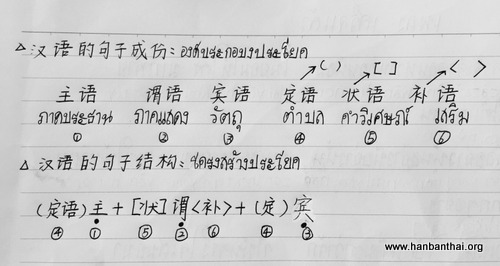 △ 汉语的句子成份: องค์ประกอบประโยค
( ) [ ] < >
主语 谓语 宾语 定语 状语 补语
ภาคประธาน ภาคแสดง วัตถุ คำบท คำวิเศษณ์ เสริม
① ② ③ ④ ⑤ ⑥
△ 汉语的句子结构: โครงสร้างประโยค
(定语)主 + [状]谓<补> + (定)宾
④ ① ⑤ ② ⑥ ④ ③
www.hanbanthai.org